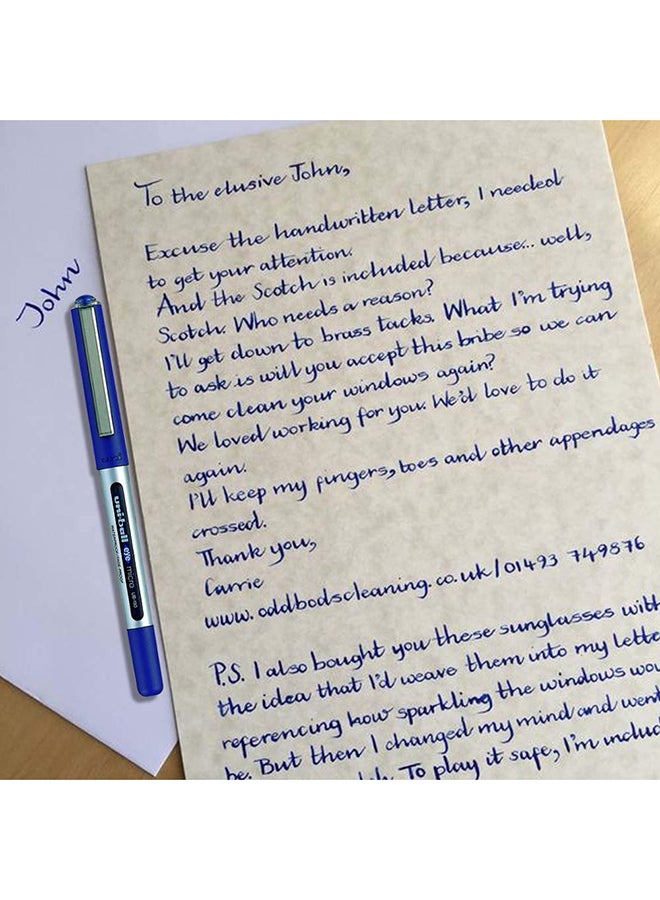 To the elusive John,
Excuse the handwritten letter, I needed
to get your attention.
And the Scotch is included because... well,
Scotch. Who needs a reason?
I'll get down to brass tacks. What I'm trying
to ask is will you accept this bribe so we can
come clean your windows again?
We loved working for you. We'd love to do it
again.
I'll keep my fingers, toes and other appendages
crossed.
Thank you,
Carrie
www.oddbodscleaning.co.uk/01493 749876
P.S. I also bought you these sunglasses with
the idea that I'd weave them into my
referencing how sparkling the windows
be. But then I changed my mind and went
To play it safe, I'm
John
uni-ball eye micro UB-150